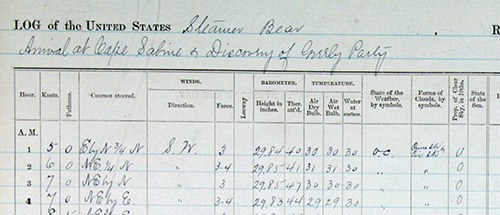 LOG of the UNITED STATES Steamer Bear R
Arrival at Cape Sabine & Discovery of Greely Party
WINDS. BAROMETER. TEMPERATURE.
Hour. Knots. Fathoms. Courses steered. Direction. Force. Leeway Height in inches. Ther. att'd. Air Dry Bulb. Air Wet Bulb. Water at surface. State of the Weather, by symbols. Forms of Clouds, by symbols. Prop. of Clear Sky, in 10ths. State of the Sea.
A.M.
1 5 0 E by N 3/4 N S.W. 3 29.84 40 30 30 30 o.c. 0
2 6 0 N.E. 3/4 N " 3.4 29.85 41 31 31 30 " " 0
3 7 0 N.E by N " 3 29.85 47 30 30 30 " " 0
4 7 0 N.E by E " 3.4 29.83 44 29 29 30 " " 0